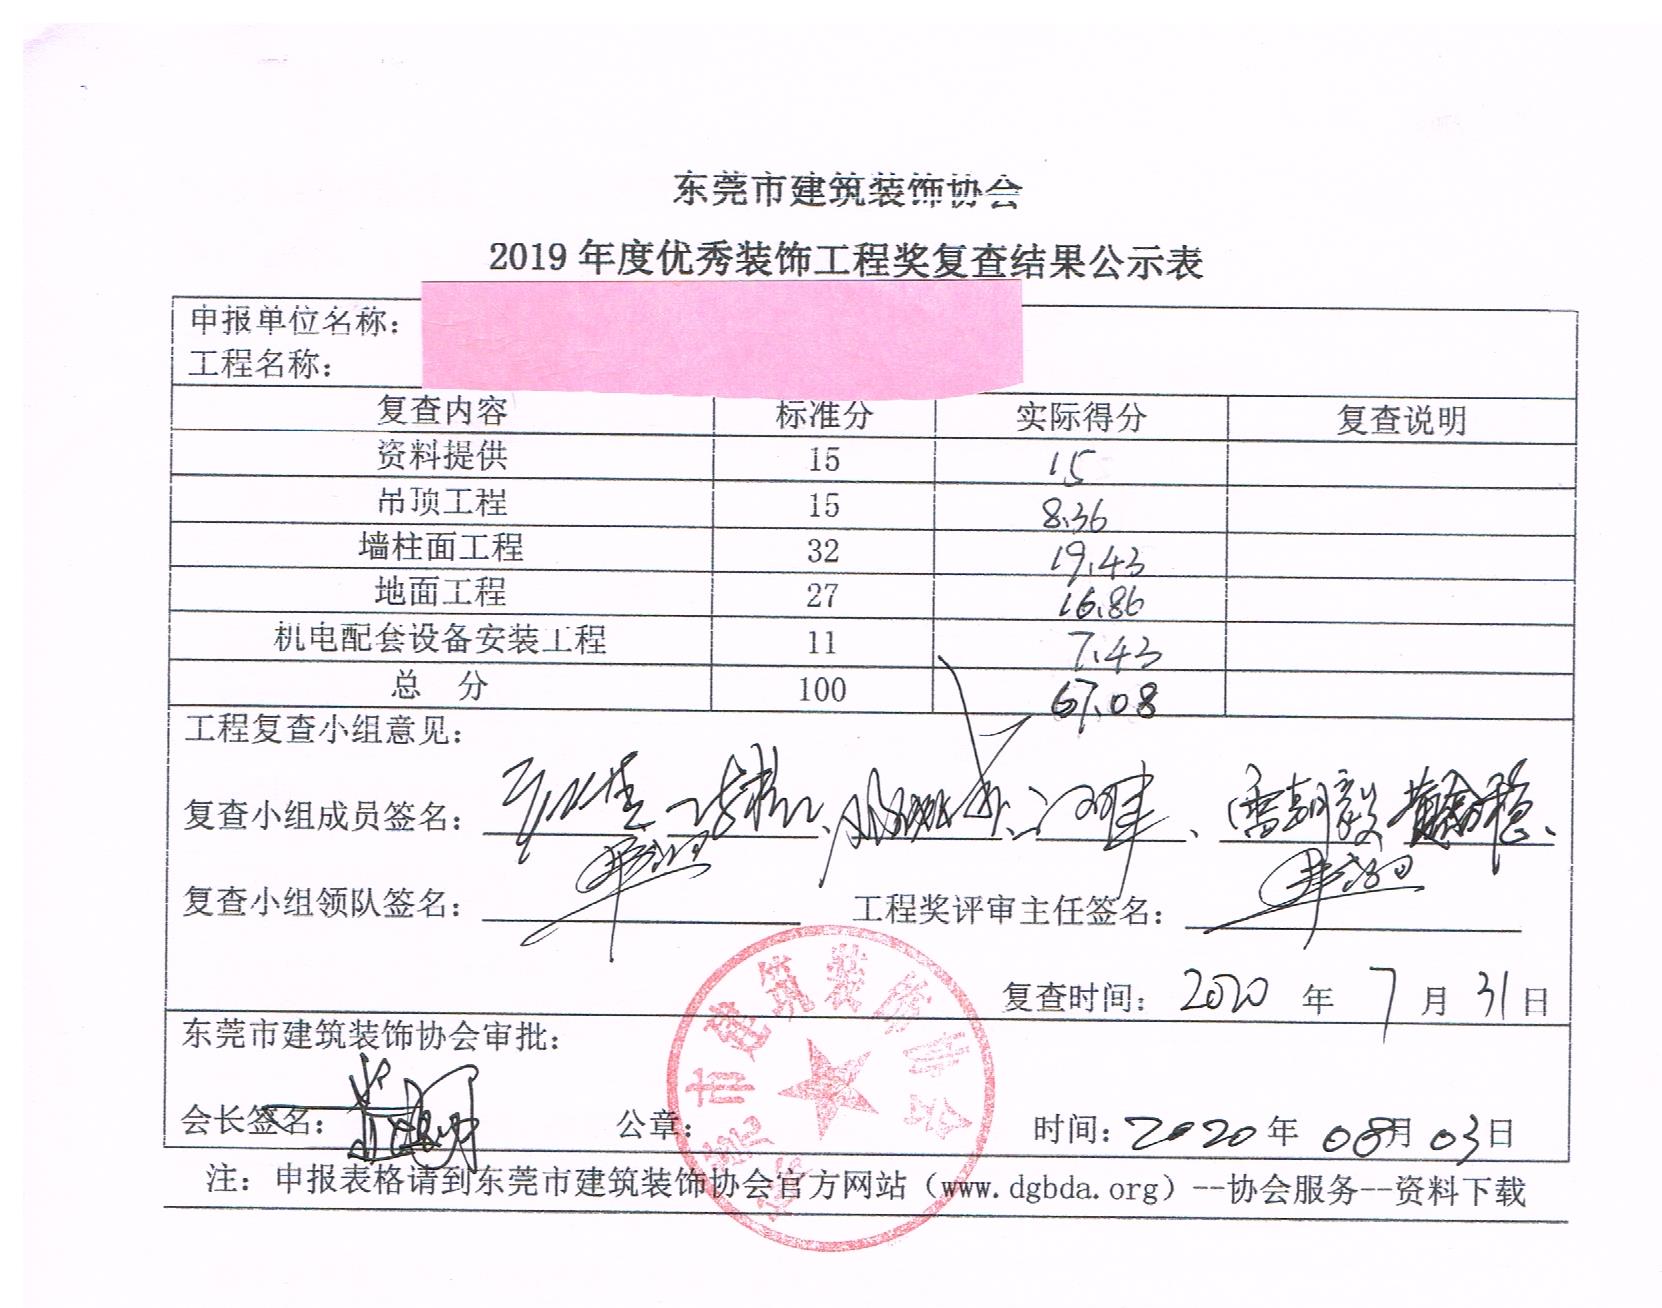 东莞市建筑装饰协会
2019 年度优秀装饰工程奖复查结果公示表
申报单位名称:
工程名称:
复查内容 标准分 实际得分 复查说明
资料提供 15 15
吊顶工程 15 8.36
墙柱面工程 32 19.43
地面工程 27 16.86
机电配套设备安装工程 11 7.43
总 分 100 67.08
工程复查小组意见:
复查小组成员签名: 、 、 、 、 雷朝毅 、
复查小组领队签名: 工程奖评审主任签名:
复查时间: 2020 年 7 月 31 日
东莞市建筑装饰协会审批:
会长签名: 公章: 时间: 2020 年 08 月 03 日
东莞市建筑装饰协会
注: 申报表格请到东莞市建筑装饰协会官方网站（www.dgbda.org）--协会服务--资料下载